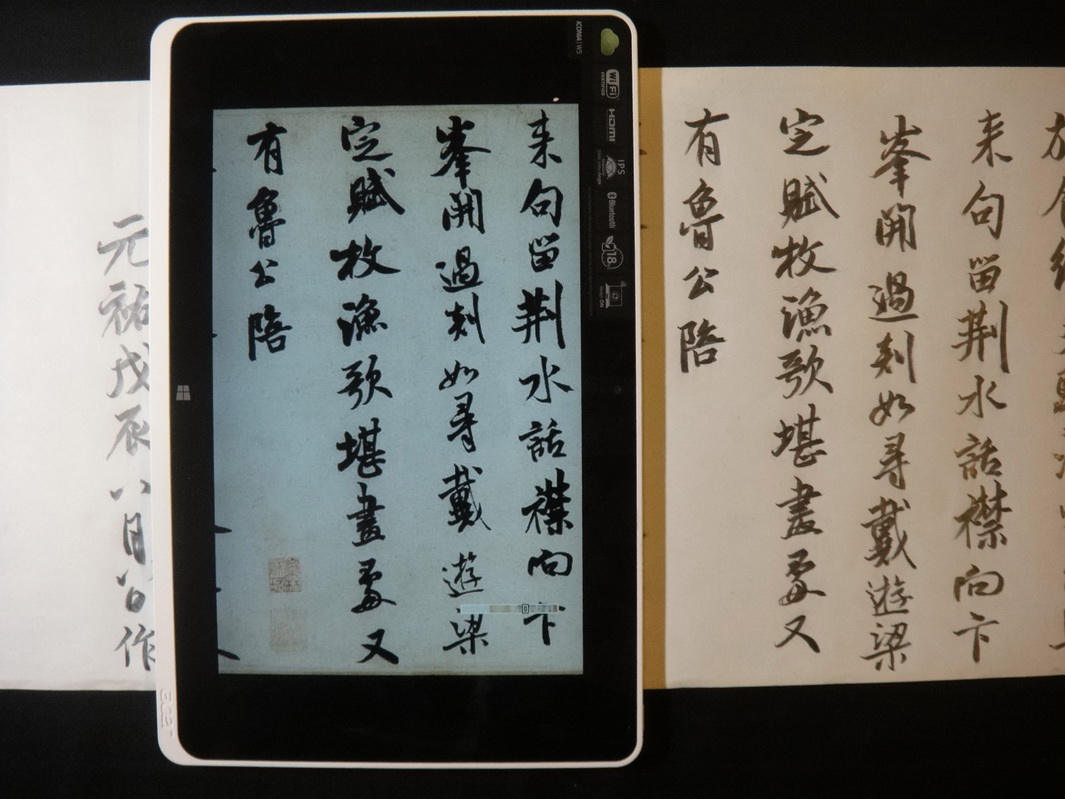 来句留荆水話襟向卞
峯開過剡如尋戴遊梁
定賦枚漁歌堪畫處又
有魯公陪
ICONIA W5
Wi Fi
CERTIFIED
HDMI
IPS
Bluetooth
18
来句留荆水話襟向卞
峯開過剡如尋戴遊梁
定賦枚漁歌堪畫處又
有魯公陪
元祐戊辰八月八日作